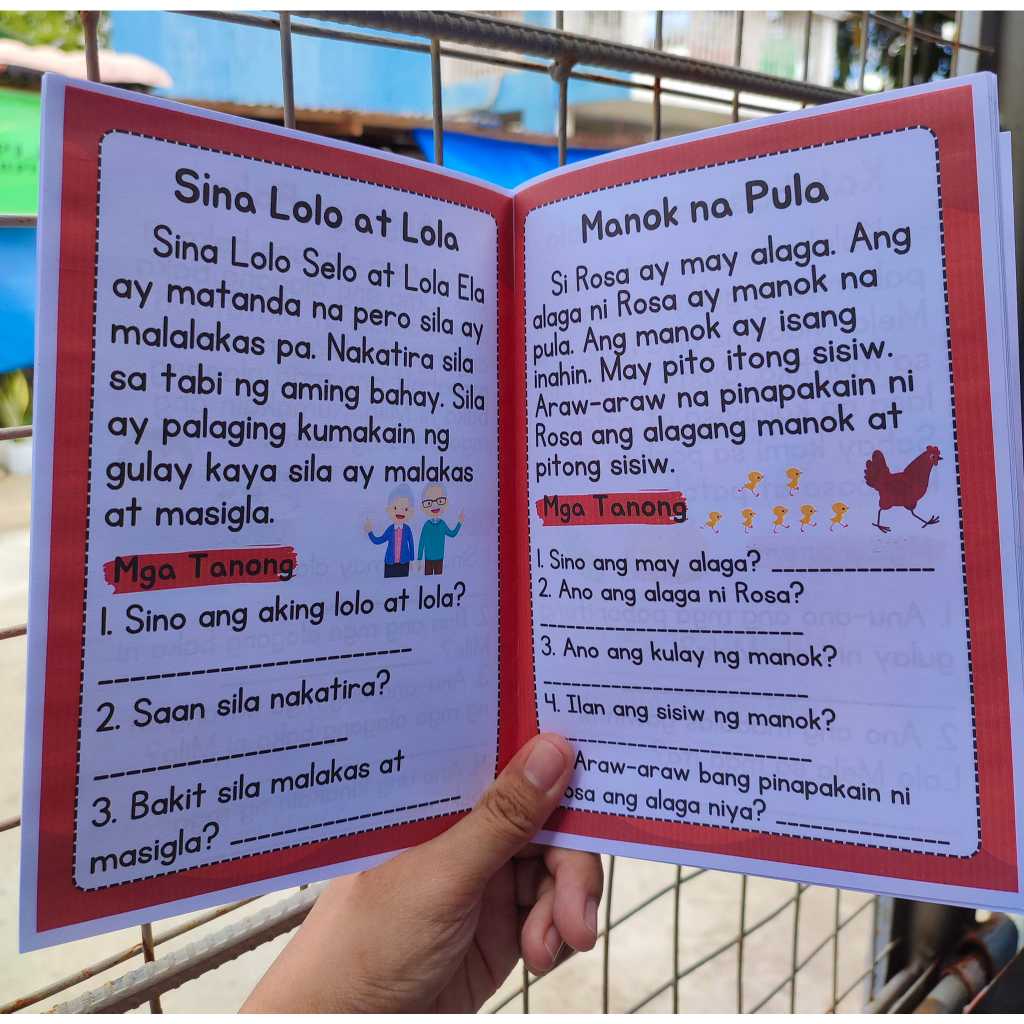 Sina Lolo at Lola
Sina Lolo Selo at Lola Ela
ay matanda na pero sila ay
malalakas pa. Nakatira sila
sa tabi ng aming bahay. Sila
ay palaging kumakain ng
gulay kaya sila ay malakas
at masigla.
Mga Tanong
1. Sino ang aking lolo at lola?
2. Saan sila nakatira?
3. Bakit sila malakas at
masigla?
Manok na Pula
Si Rosa ay may alaga. Ang
alaga ni Rosa ay manok na
pula. Ang manok ay isang
inahin. May pito itong sisiw.
Araw-araw na pinapakain ni
Rosa ang alagang manok at
pitong sisiw.
Mga Tanong
1. Sino ang may alaga?
2. Ano ang alaga ni Rosa?
3. Ano ang kulay ng manok?
4. Ilan ang sisiw ng manok?
Araw-araw bang pinapakain ni
osa ang alaga niya?